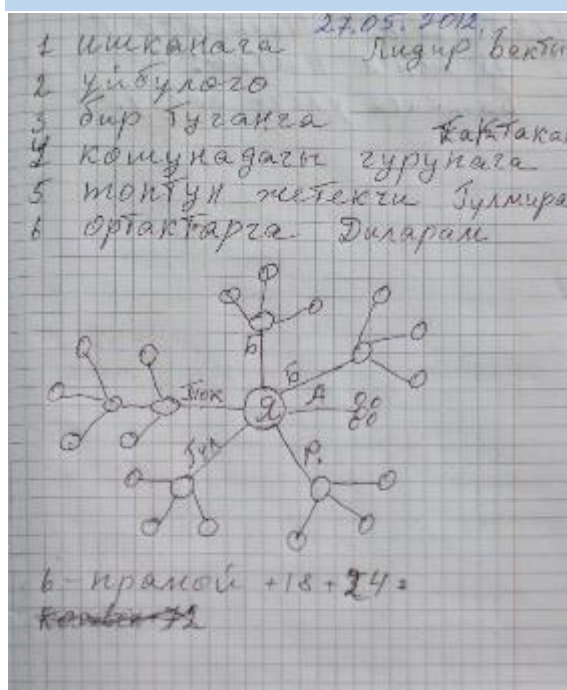 27.05.2012.
1 ишканага Лидир Бекты
2 үйбүлөгө
3 бир туганга
4 кошунадагы гурупага
5 топтун жетекчи Гулмира
6 ортактарга Диларам
Б
Б
А
Я
Гул
Р.
6 - прамой +18 + 24 =